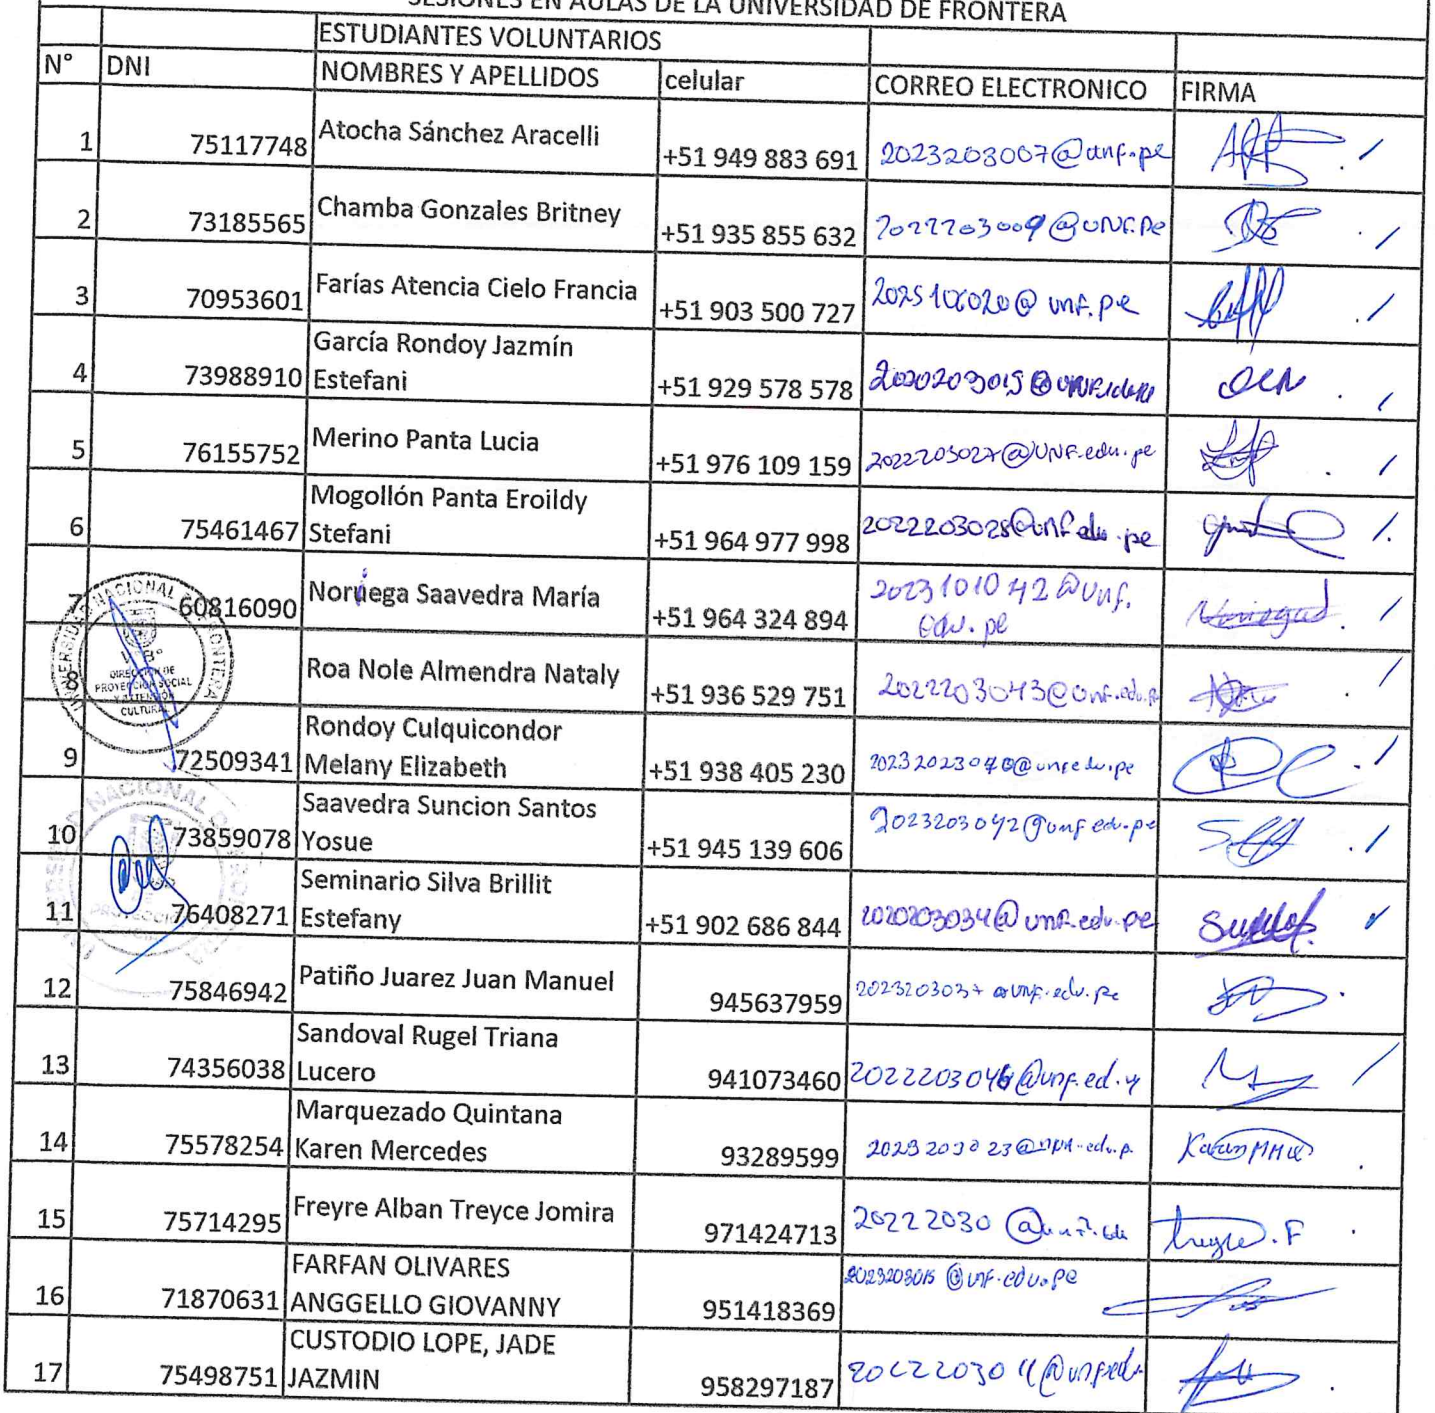 SESIONES EN AULAS DE LA UNIVERSIDAD DE FRONTERA
ESTUDIANTES VOLUNTARIOS
N° DNI NOMBRES Y APELLIDOS celular CORREO ELECTRONICO FIRMA
1 75117748 Atocha Sánchez Aracelli +51 949 883 691 2023203007@unf.pe
2 73185565 Chamba Gonzales Britney +51 935 855 632 2022203009@UNF.Pe
3 70953601 Farías Atencia Cielo Francia +51 903 500 727 @unf.pe
4 73988910 García Rondoy Jazmín
Estefani +51 929 578 578
5 76155752 Merino Panta Lucia +51 976 109 159 2022203027@UNF.edu.pe
6 75461467 Mogollón Panta Eroildy
Stefani +51 964 977 998 2022203028@unf.edu.pe
7 60816090 Noriega Saavedra María +51 964 324 894 2023101042@unf.
edu.pe
8 Roa Nole Almendra Nataly +51 936 529 751 2022203043@unf.edu.p
9 72509341 Rondoy Culquicondor
Melany Elizabeth +51 938 405 230
10 73859078 Saavedra Suncion Santos
Yosue +51 945 139 606 2023203042@unf.edu.pe
11 76408271 Seminario Silva Brillit
Estefany +51 902 686 844 2020203034@unf.edu.pe
12 75846942 Patiño Juarez Juan Manuel 945637959 2023203037@unf.edu.pe
13 74356038 Sandoval Rugel Triana
Lucero 941073460 2022203046@unf.ed.
14 75578254 Marquezado Quintana
Karen Mercedes 93289599 Karen
15 75714295 Freyre Alban Treyce Jomira 971424713 20222030
16 71870631 FARFAN OLIVARES
ANGGELLO GIOVANNY 951418369 2023203015@unf.edu.pe
17 75498751 CUSTODIO LOPE, JADE
JAZMIN 958297187
UNIVERSIDAD NACIONAL DE FRONTERA
V°B°
DIRECCIÓN DE
PROYECCIÓN SOCIAL
CULTURAL